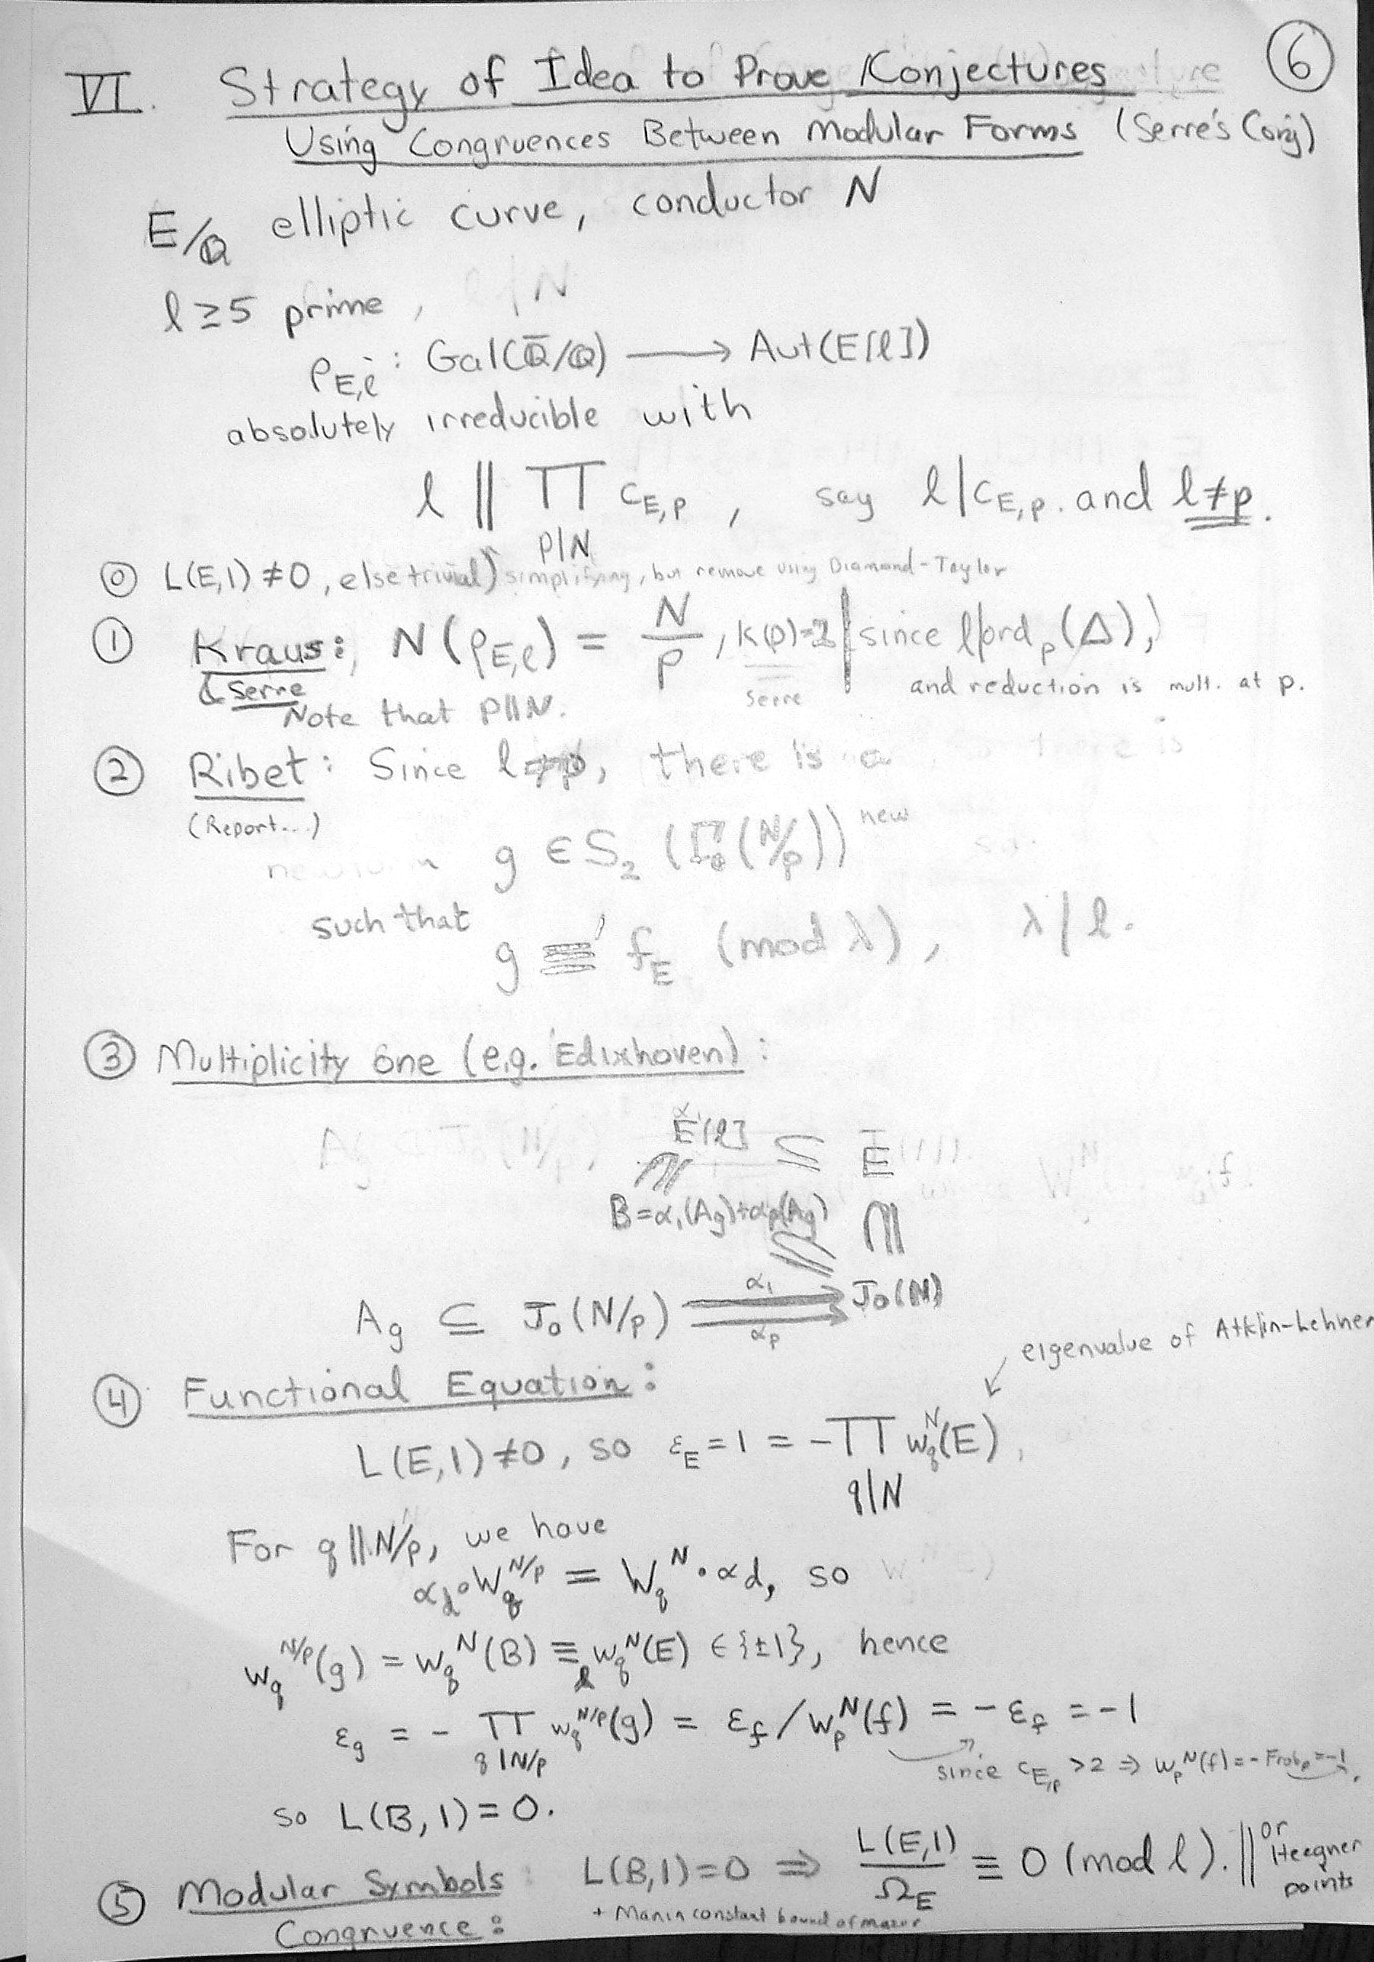 ⑥
VI. Strategy of Idea to Prove Konjectures
Using Congruences Between Modular Forms (Serre's Conj)
E/ℚ elliptic curve, conductor N
l ≥ 5 prime,
ρ_{E,l} : Gal(ℚ̄/ℚ) ⟶ Aut(E[l])
absolutely irreducible with
l ∥ ∏_{p|N} c_{E,p}, say l | c_{E,p} and l ≠ p.
⓪ L(E,1) ≠ 0, else trivial) simplifying, but remove using Diamond-Taylor
① Kraus: N(ρ_{E,l}) = N/p, k(ρ)=2 | since l | ord_p(Δ),
& Serre Serre and reduction is mult. at p.
Note that p∥N.
② Ribet: Since l ≠ p, there is a
(Report...)
newform g ∈ S₂(Γ₀(N/p))^{new}
such that
g ≡ f_E (mod λ), λ | l.
③ Multiplicity one (e.g. Edixhoven):
E[l] ⊆ E
B = α₁(A_g) + α_p(A_g)
A_g ⊆ J₀(N/p) ⇉ J₀(N)
α₁
α_p
④ Functional Equation:
eigenvalue of Atklin-Lehner
L(E,1) ≠ 0, so ε_E = 1 = -∏_{q|N} w_q^N(E),
For q ∥ N/p, we have
α_d ∘ W_q^{N/p} = W_q^N ∘ α_d, so
w_q^{N/p}(g) = w_q^N(B) ≡_l w_q^N(E) ∈ {±1}, hence
ε_g = - ∏_{q|N/p} w_q^{N/p}(g) = ε_f / w_p^N(f) = -ε_f = -1
since c_{E,p} > 2 ⇒ w_p^N(f) = -Frob_p = -1.
so L(B,1) = 0.
⑤ Modular Symbols Congruence: L(B,1)=0 ⇒ L(E,1)/Ω_E ≡ 0 (mod l). ∥ or Heegner points
+ Manin constant bound of mazur